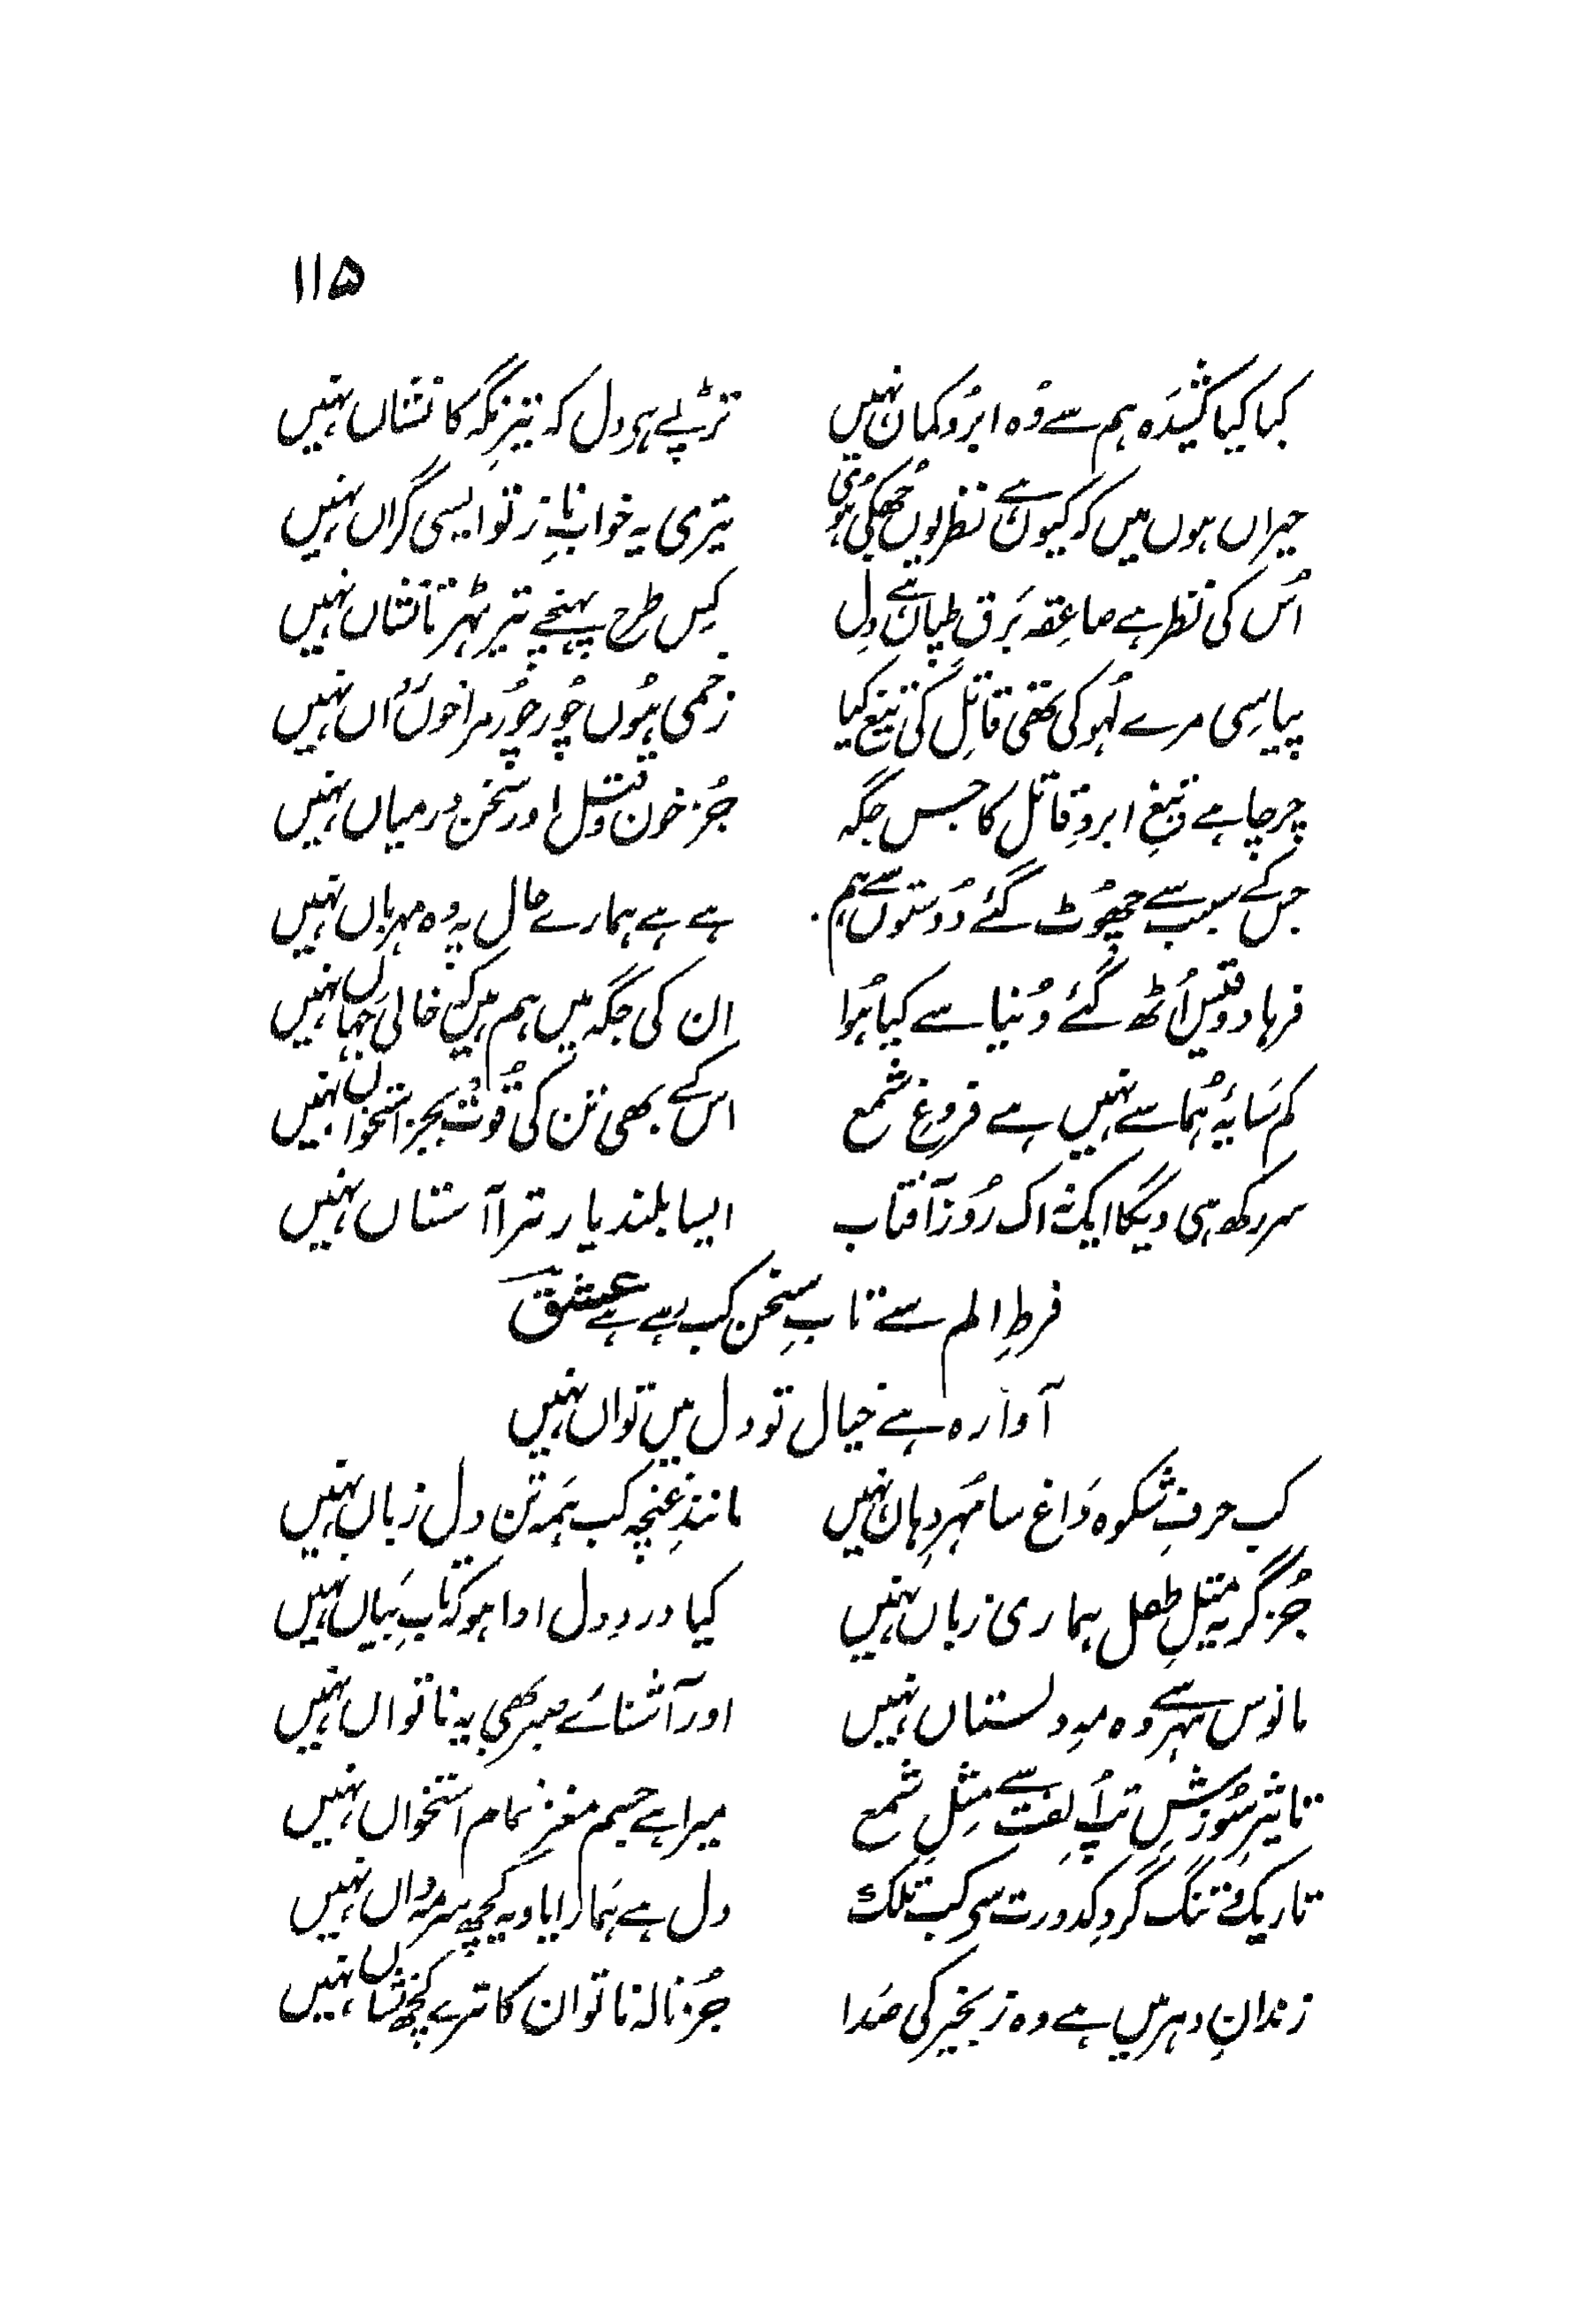 ۱۱۵
کیا کیا کشیدہ ہم سے وُہ ابرُو کمان نہیں تڑپے ہی دل کہ تیرِ نگہ کا نشاں نہیں
حیراں ہوں میں کہ کیوں ہے نظر یوں جُھکی ہُوئی تیری یہ خوابِ ناز تو ایسی گراں نہیں
اُس کی نظر ہے صاعِقہ بَرقِ طپاں ہے دِل کِس طرح پہنچے تیر ٹہرتا نشاں نہیں
پیاسِی مرے لہُو کی تھی قاتِل کی تیغ کیا زخمی ہُوں چُور چُور مرا خوں رَواں نہیں
چرچا ہے تیغِ ابروِ قاتل کا جس جگہ جُز خون و قتل اور سخن درمیاں نہیں
جس کے سبب سے چھُوٹ گئے دُوستوں سے ہم ہے ہے ہمارے حال پہ وہ مہرباں نہیں
فرہاد و قیس اُٹھ گئے دُنیا سے کیا ہُوا ان کی جگہ میں ہم ہیں کہ خالی جہاں نہیں
کم سَایۂ ہُما سے نہیں ہے فروغِ شمع اس کے بھی تن کی قُوت بجز استخواں نہیں
سر رکھ ہی دیگا ایک نہ اک رُوز آفتاب ایسا بلند یار ترا آستاں نہیں
فرطِ الم سے تابِ سخن کب ہے ہے عشق
آوارہ ہے خیال تو دل میں تواں نہیں
کب حرفِ شکوہ دَاغ سا مُہرِ دِہان نہیں مانندِ غنچہ کب ہَمہ تن دِل زباں نہیں
جُز گریہ مثلِ طفل ہماری زباں نہیں کیا دردِ دل ادا ہو کہ تابِ بَیاں نہیں
مانوس مہر سے وہ مہِ دلستاں نہیں اور آشنائے صبر بھی یہ ناتواں نہیں
تاثیرِ سُوزشِ تپِ اُلفت سے مِثلِ شمع میرا ہے جسم مغز تمام استخواں نہیں
تاریک و تنگ گردِ کدورت سی کب تلک دل ہے ہَمارا یا وہ کچھ سرمہ داں نہیں
زندانِ دہر میں ہے وہ زنجیر کی صَدا جُز نالہ ناتوان کا ترے کچھ نشاں نہیں